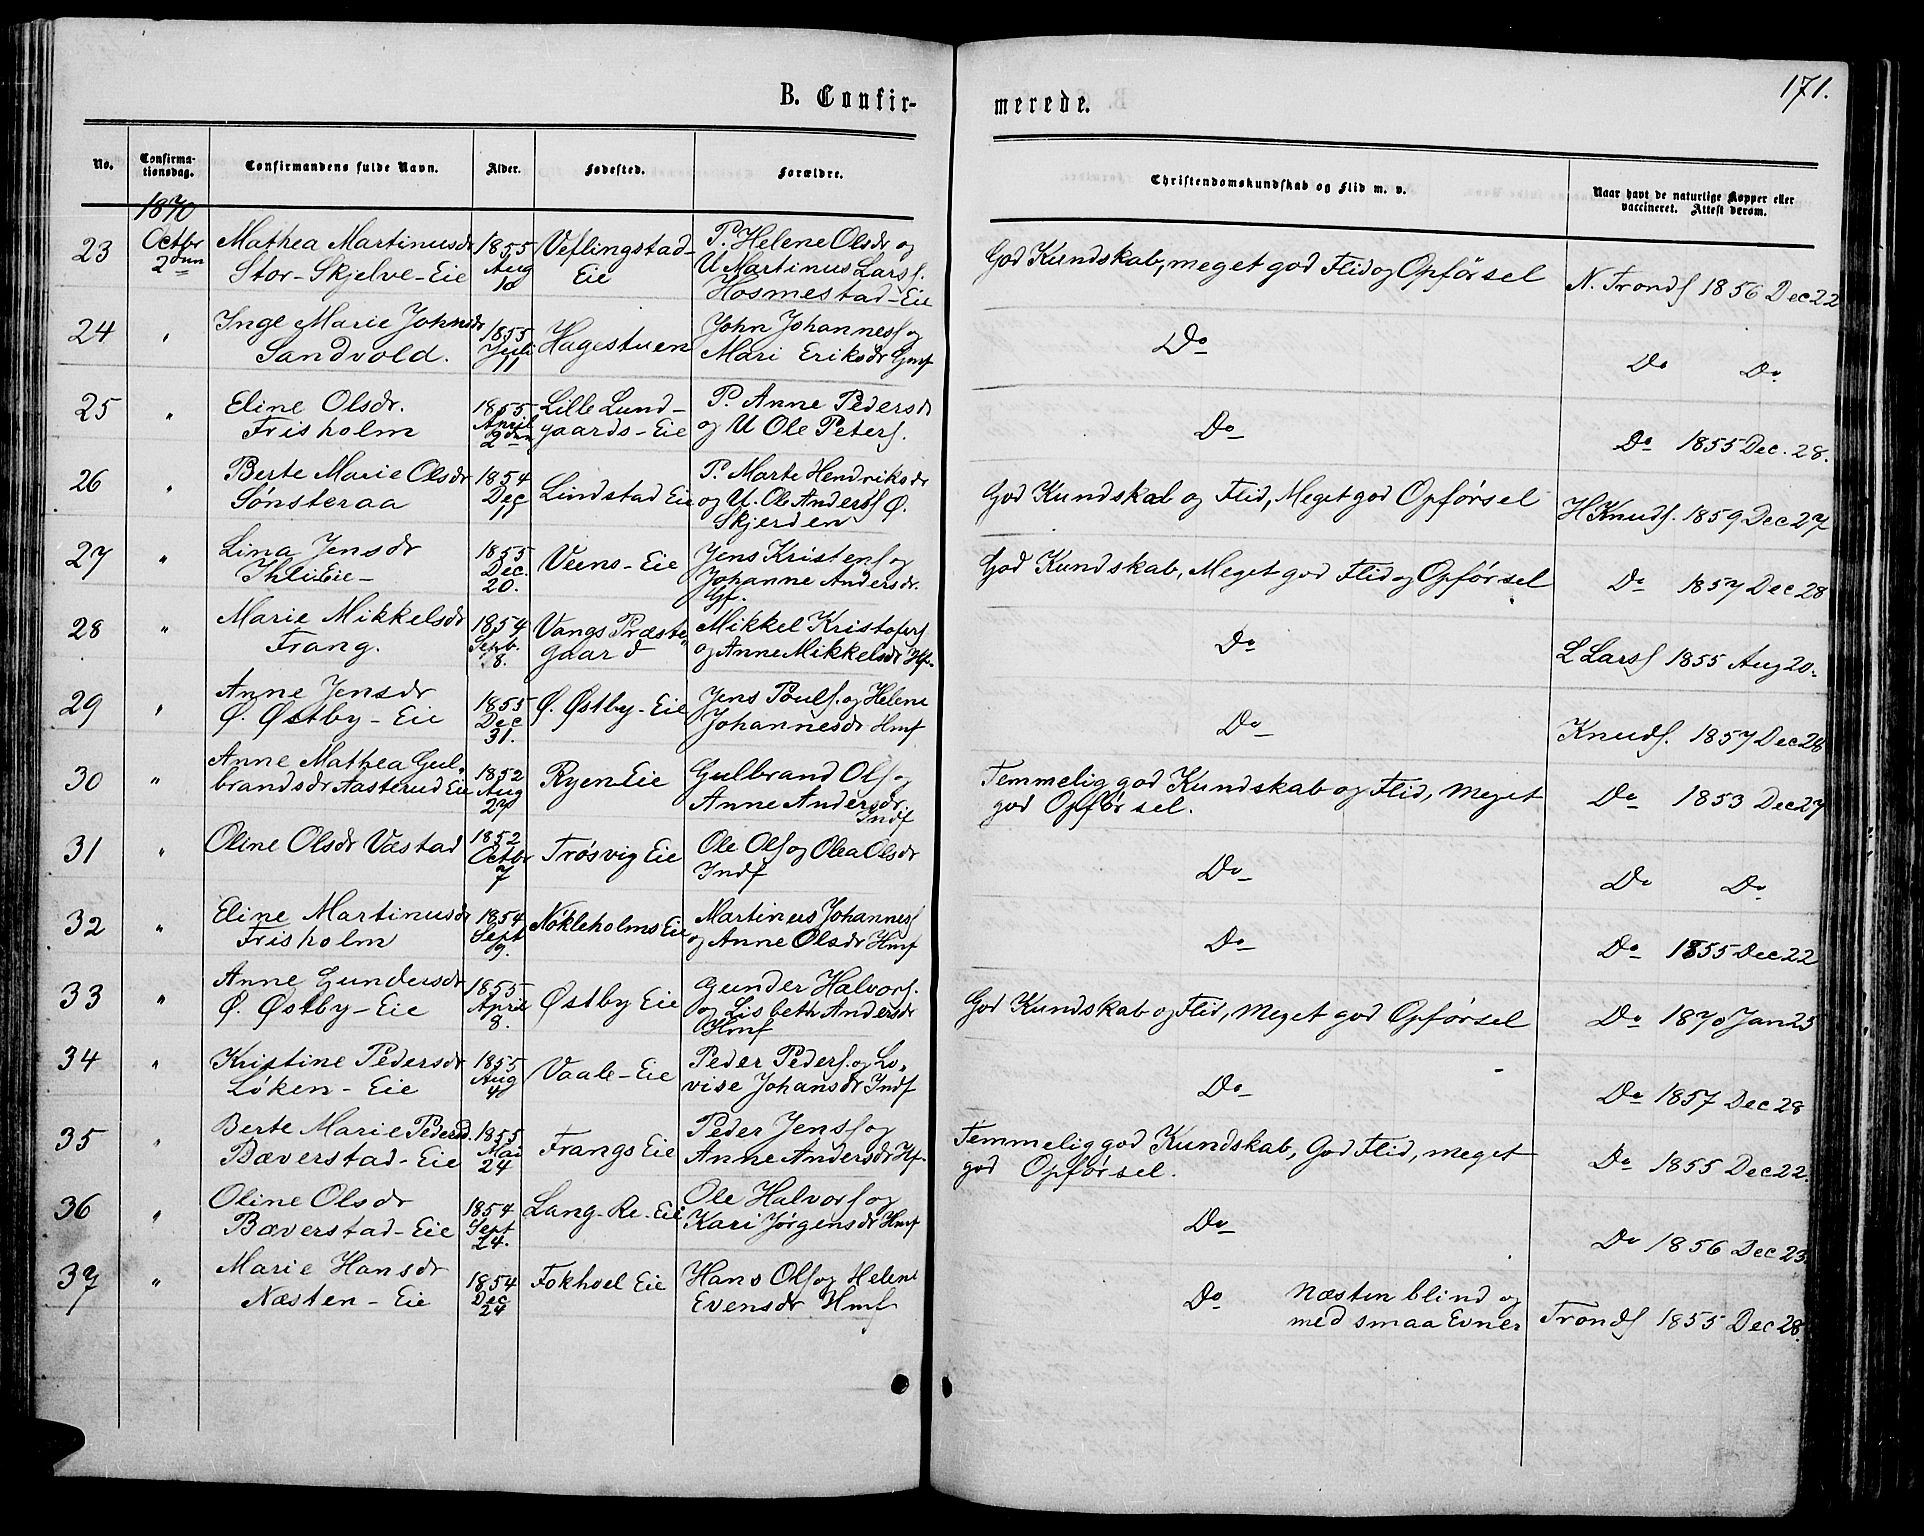 B. Confir-
merede.
171.
No.
Confirma-
tionsdag.
Confirmandens fulde Navn.
Alder.
Fødested.
Forældre.
Christendomskundskab og Flid m. v.
Naar havt de naturlige Kopper eller
vaccineret. Attest derom.
1870
23 Octbr Mathea Martinusdr 1855 Veflingstad- P. Helene Olsdr og
2den Stor-Skjelve-Eie Aug 10 Eie U Martinus Larsf.
Hosmestad-Eie
God Kundskab, meget god Flid og Opførsel N. Trondf 1856 Dec 22
24 " Inge Marie Johnsdr 1855 Hagestuen John Johannesf og
Sandvold. Juli 11 Mari Eriksdr Gmf
Do Do Do
25 " Eline Olsdr. 1855 Lille Lund- P. Anne Pedersdr
Frisholm April 2den gaards-Eie og U Ole Petersf.
Do Do 1855 Dec. 28.
26 " Berte Marie Olsdr 1854 Lindstad Eie P. Marte Hendriksdr
Sønsteraa Dec 11 og U. Ole Andersf Ø.
Skjerden
God Kundskab og Flid, Meget god Opførsel H Knudf. 1859 Dec 27
27 " Lina Jensdr 1855 Veens-Eie Jens Kristenf og
Ihli Eie- Dec. 20. Johanne Andersdr.
Gf.
God Kundskab, Meget god Flid og Opførsel Do 1857 Dec 28
28 " Marie Mikkelsdr 1854 Vangs Præste Mikkel Kristofersf
Frang. Septb. 18. gaard og Anne Mikkelsdr Hf.
Do L Larsf 1855 Aug 20.
29 " Anne Jensdr 1855 Ø. Østby-Eie Jens Poulsf. og Helene
Ø. Østby-Eie Dec 31. Johannesdr Hmf
Do Knudf. 1857 Dec 28
30 " Anne Mathea Gul- 1852 Ryen Eie Gulbrand Olsf og
brandsdr Aasterud Eie Aug 27 Anne Andersdr.
Indf
Temmelig god Kundskab og Flid, Meget Do 1853 Dec 27
god Opførsel.
31 " Oline Olsdr Væstad 1852 Trøsvig Eie Ole Olsf og Olea Olsdr
Octbr 7 Indf
Do Do Do
32 " Eline Martinusdr 1854 Nökleholms Eie Martinus Johannesf
Frisholm Sept 9. og Anne Olsdr Hmf
Do Do 1855 Dec 22
33 " Anne Gundersdr 1855 Østby Eie Gunder Halvorsf.
Ø. Østby-Eie April 8. og Lisbeth Andersdr
Hmf
God Kundskab og Flid, Meget god Opførsel Do 1870 Jan 25
34 " Kristine Pedersdr 1855 Vaale-Eie Peder Pedersf. og Lo-
Løken-Eie Aug 4 vise Johansdr Indf
Do Do 1857 Dec 28
35 " Berte Marie Pedersd. 1855 Frangs Eie Peder Jensf og
Bæverstad-Eie Mai 24 Anne Andersdr Hf.
Temmelig god Kundskab, God Flid, meget Do 1855 Dec 22.
god Opførsel.
36 " Oline Olsdr 1854 Lang-Re-Eie Ole Halvorsf og
Bæverstad-Eie Sept 24. Kari Jørgensdr Hmf
Do Do 1856 Dec 23.
37 " Marie Hansdr 1854 Fokhoel Eie Hans Olsf og Helene
Næsten-Eie Dec 24 Evensdr Hmf
Do Næsten blind og
med smaa Evner Trondf 1855 Dec 28.